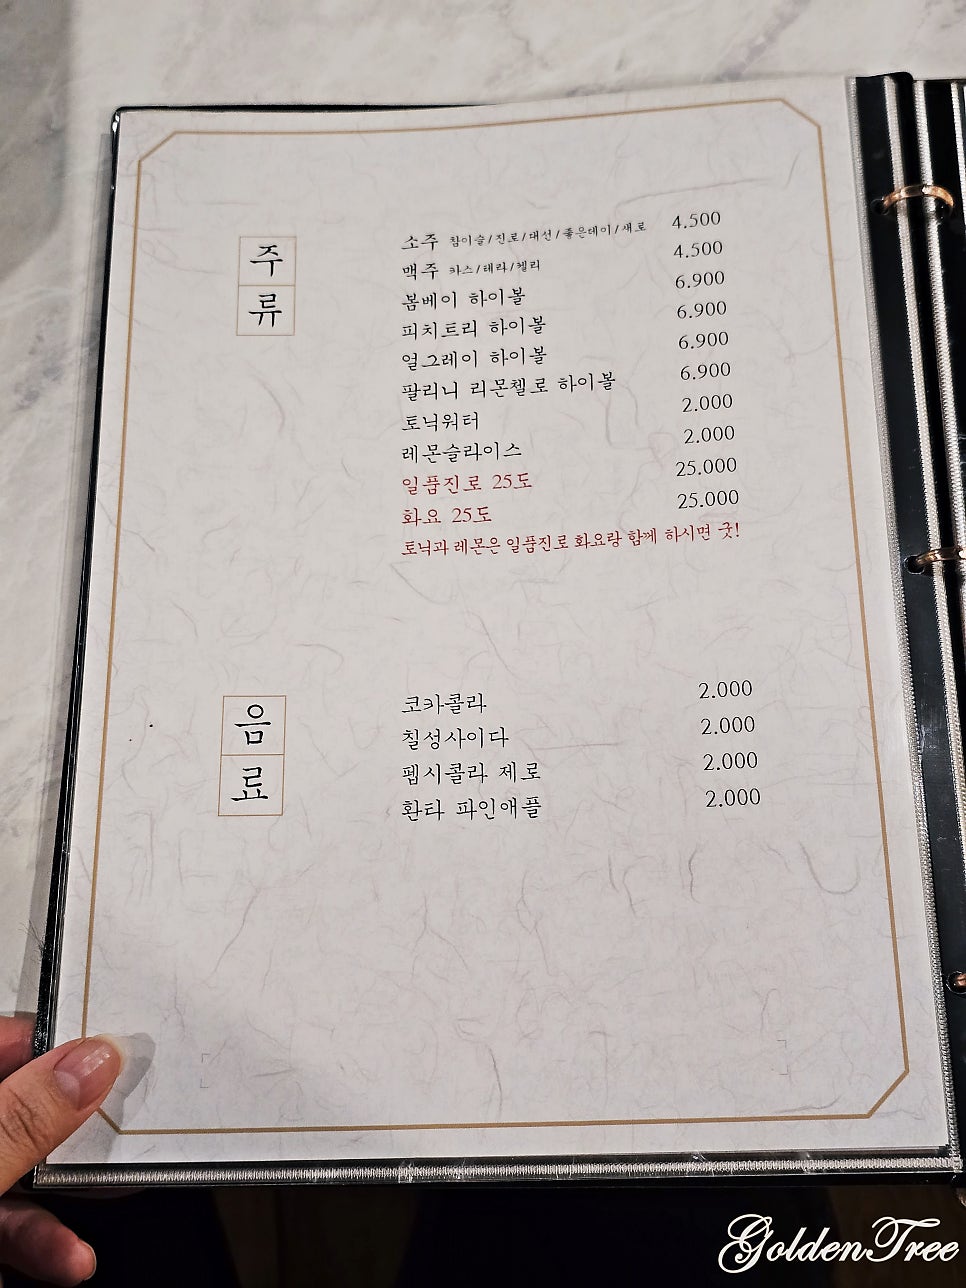 주류
소주 참이슬/진로/대선/좋은데이/새로 4.500
맥주 카스/테라/켈리 4.500
봄베이 하이볼 6.900
피치트리 하이볼 6.900
얼그레이 하이볼 6.900
팔리니 리몬첼로 하이볼 6.900
토닉워터 2.000
레몬슬라이스 2.000
일품진로 25도 25.000
화요 25도 25.000
토닉과 레몬은 일품진로 화요랑 함께 하시면 굿!
음료
코카콜라 2.000
칠성사이다 2.000
펩시콜라 제로 2.000
환타 파인애플 2.000
GoldenTree